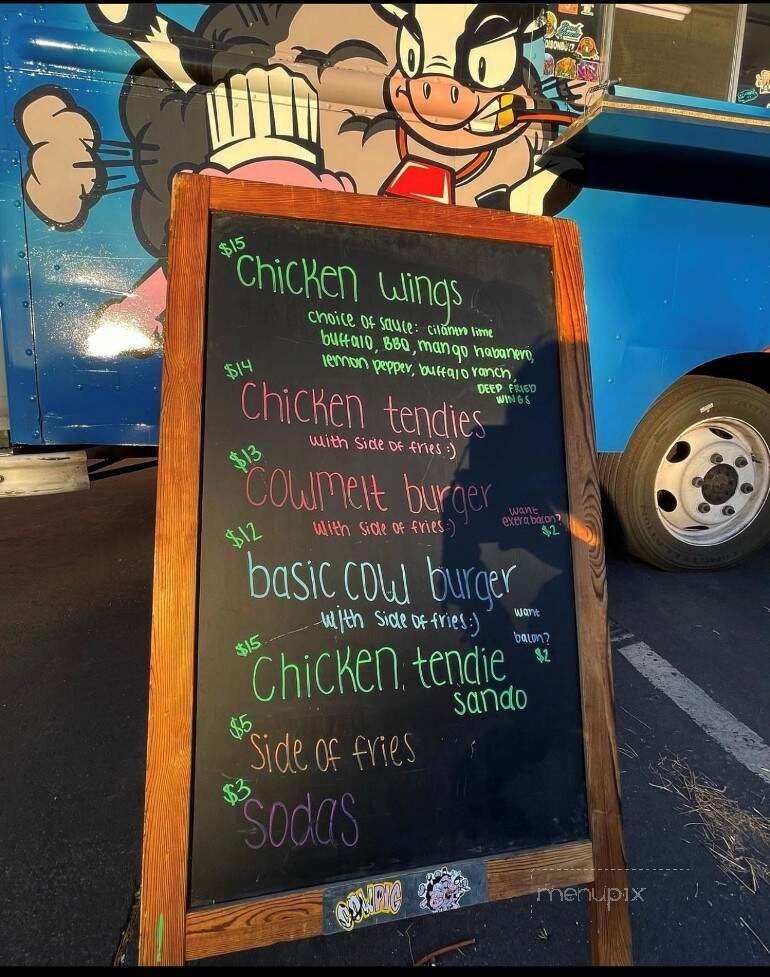 $15
Chicken wings
choice of sauce: cilantro lime
buffalo, BBQ, mango habanero,
lemon pepper, buffalo ranch,
DEEP FRIED
WINGS
$14
Chicken tendies
with side of fries :)
$13
cowmelt burger
with side of fries :)
want
extra bacon?
$2
$12
basic cow burger
with side of fries :)
want
bacon?
$2
$15
Chicken tendie
sando
$5
Side of fries
$3
sodas
COWPIG
menupix